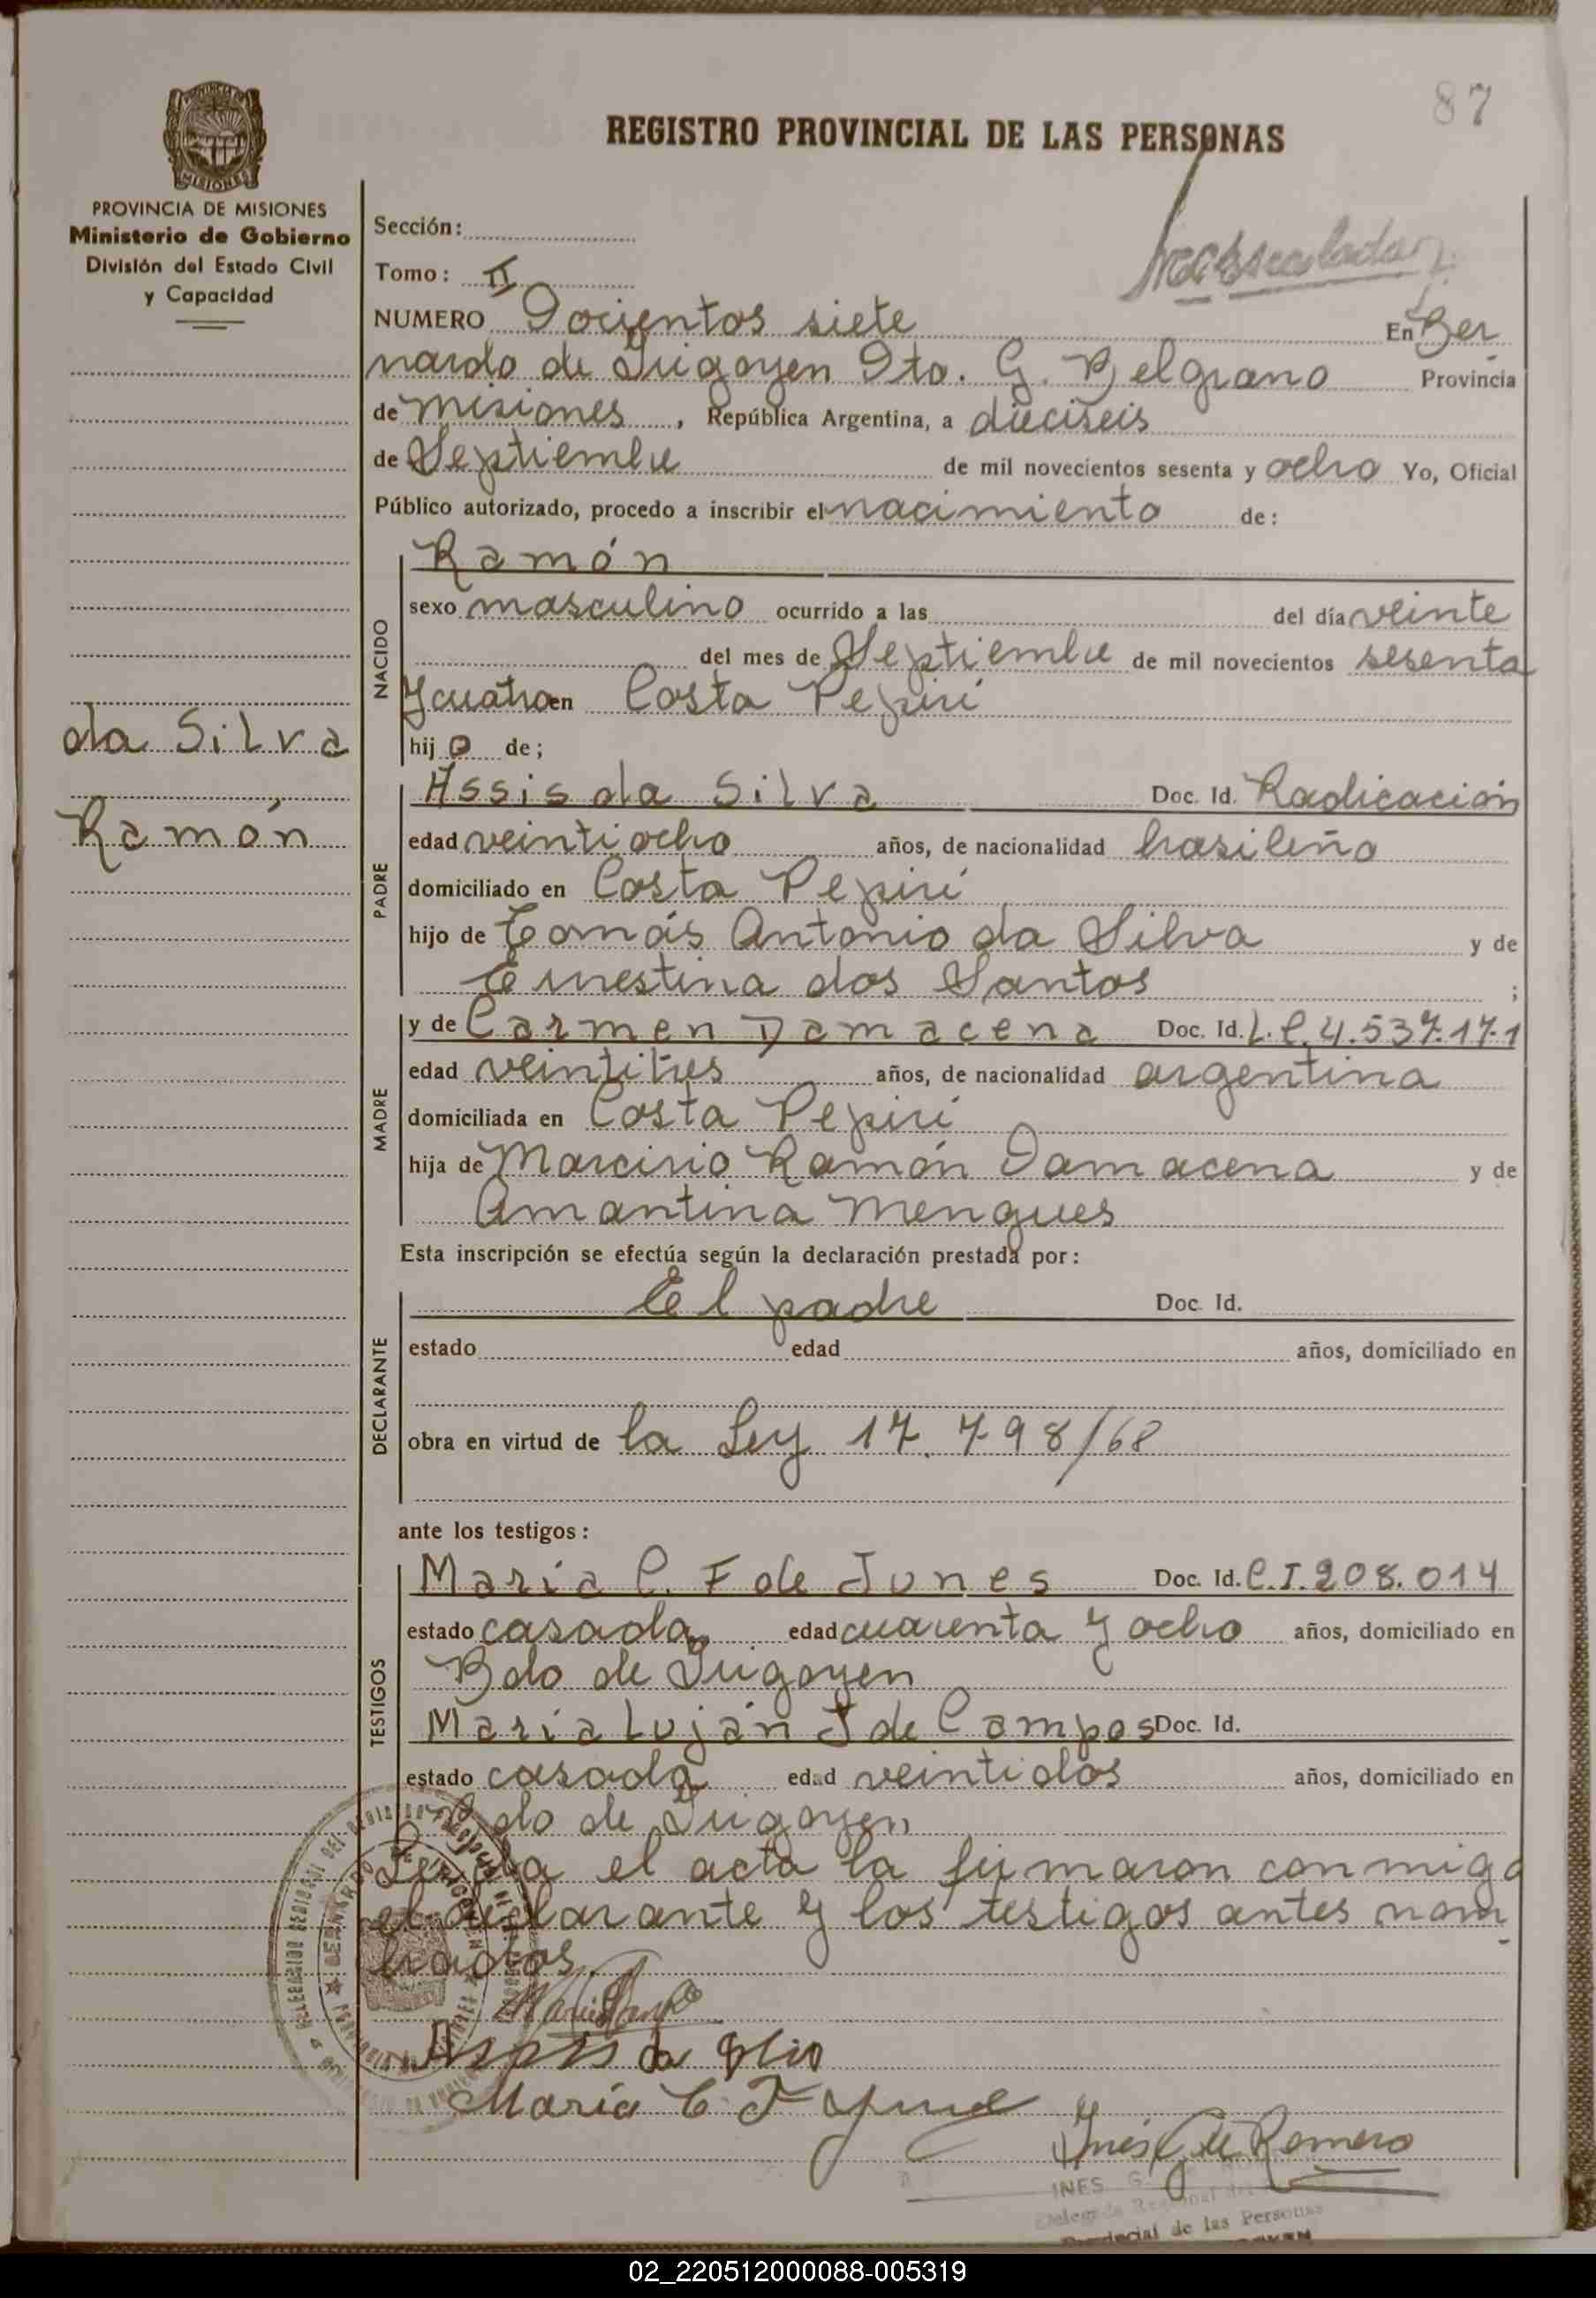 87
REGISTRO PROVINCIAL DE LAS PERSONAS
MISIONES
PROVINCIA DE MISIONES
Ministerio de Gobierno
División del Estado Civil
y Capacidad
Sección:
Tomo: II
NUMERO Docientos siete En Ber
nardo de Irigoyen Dto. G. Belgrano Provincia
de misiones, República Argentina, a dieciseis
de Septiembre de mil novecientos sesenta y ocho Yo, Oficial
Público autorizado, procedo a inscribir el nacimiento de:
NACIDO
Ramón
sexo masculino ocurrido a las del día veinte
del mes de Septiembre de mil novecientos sesenta
y cuatro en Costa Pepirí
hijo de;
da Silva
Ramón
PADRE
Assis da Silva Doc. Id. Radicación
edad veintiocho años, de nacionalidad brasileña
domiciliado en Costa Pepirí
hijo de Tomás Antonio da Silva y de
Ernestina dos Santos ;
MADRE
y de Carmen Damacena Doc. Id. L.C. 4.537.171
edad veintitres años, de nacionalidad argentina
domiciliada en Costa Pepirí
hija de Marcirio Ramón Damacena y de
Amantina Mengues
Esta inscripción se efectúa según la declaración prestada por:
DECLARANTE
El padre Doc. Id.
estado edad años, domiciliado en
obra en virtud de la Ley 17.798/68
ante los testigos:
TESTIGOS
María C. F de Junes Doc. Id. C.I. 208.014
estado casada edad cuarenta y ocho años, domiciliado en
Bdo de Irigoyen
María Luján J de Campos Doc. Id.
estado casada edad veintidos años, domiciliado en
Bdo de Irigoyen
Leída el acta la firmaron conmigo
el declarante y los testigos antes nom
brados.
Assis da
María C. F
Inés G. de Romero
INES G.
Provincial de las Personas
02_220512000088-005319